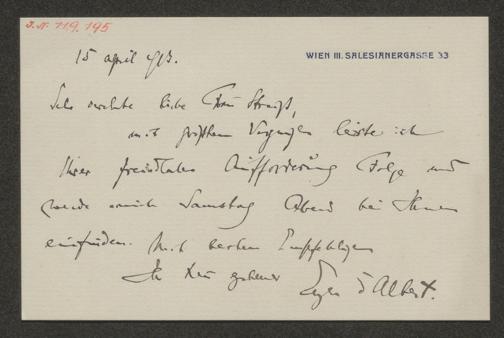 J.N. 119.195
15 April 913.
WIEN III. SALESIANERGASSE 33
Sehr verehrte liebe Frau Strauß,
mit größtem Vergnügen leiste ich
Ihrer freundlichen Aufforderung Folge und
werde mich Samstag Abend bei Ihnen
einfinden. Mit besten Empfehlungen
Ihr sehr ergebener
Eugen d'Albert.